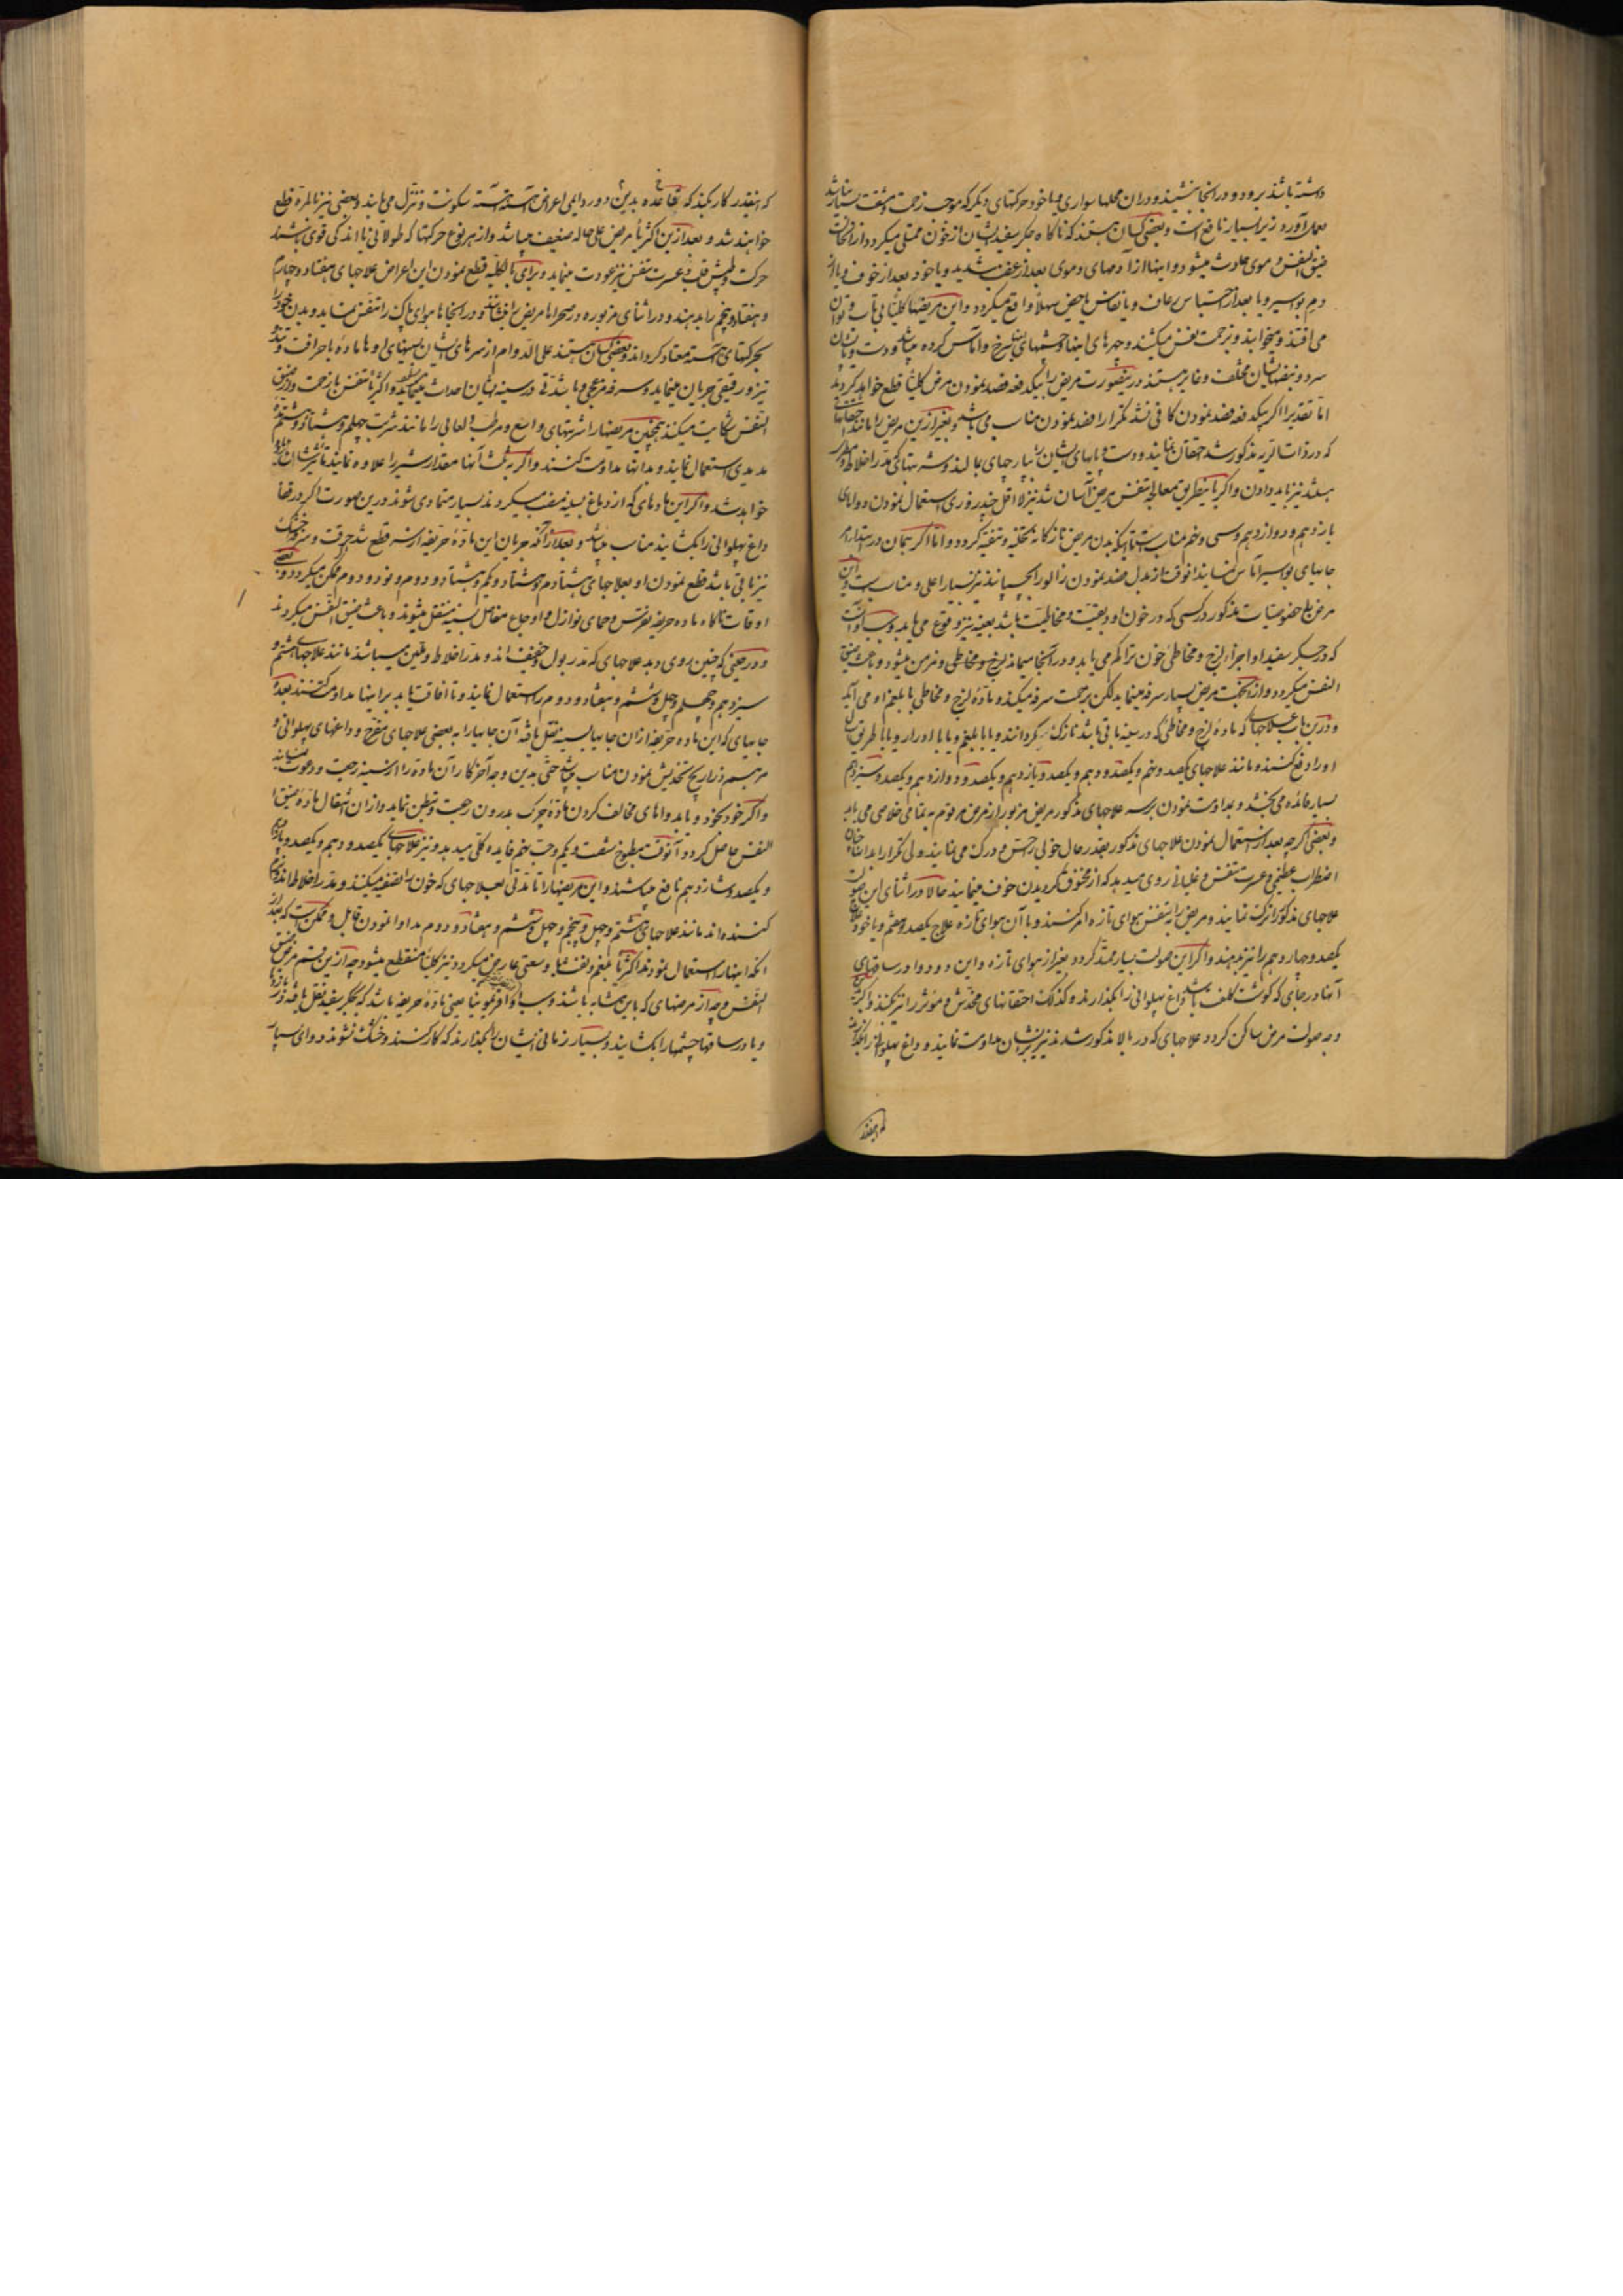 داشته باشند برود و در انجا بنشیند و دران محلها سواری و یا خود حرکتهای دیگر که موجب زحمت و مشقت بسیار نباشد
بعمل آورد زیرا بسیار نافع است و بعضی کسان هستند که ناکاه جکر سفید ایشان از خون ممتلی میکردد و ازان جهت
ضیق النفس دموی حادث میشود و اینها از آدمهای دموی بعد از غضب شدید و یا خود بعد از خوف و یا از
دم بواسیر و یا بعد از احتباس رعاف و یا نفاس یا حیض سهلاً واقع میکردد و این مریضها کلیتاً بی تاب و توان
می افتند و میخوابند و بزحمت نفس میکشند و چهرهای اینها و چشمهای ایشان سرخ و اماس کرده میباشد و دست و پایشان
سرد و نبضهایشان مختلف و غایر هستند درینصورت مریض را بیکدفعه فصد نمودن مرض کلیتاً قطع خواهد کردید
اما تقدیرا اکر بیکدفعه فصد نمودن کافی نشد تکرارا فصد نمودن مناسب می باشد و بغیر ازین مریض را مانند حقنهای
که در ذات الریه مذکور شد احتقان نمایند و دست و پایهای ایشان را بپارچهای بمالند و شربتهای که مدر اخلاط و مدر
باشند نیز باید دادن و اکر باینطریق معالجه تنفس مریض آسان شد نیز لااقل چند روزی استعمال نمودن دواهای
یازدهم و دوازدهم وسی و پنجم مناسبست تا اینکه بدن مریض تازکانه تخلیه و تنقیه کردد و اما اکر همان در ابتدا مرض
جایهای بواسیر آماس نمایند انوقت از بدل فصد نمودن زالو را بچسپانند نیز بسیار اعلی و مناسب است و این
مرض باخصوصیات مذکور در کسی که در خون او دبقیت و مخاطیت باشد بعینه نیز وقوع می یابد و سبب او آنست
که در جکر سفید او اجزاء لزج و مخاطی خون تراکم می یابد و در آنجا میماند لزج و مخاطی و مزمن میشود و باعث ضیق
النفس میکردد و ازین جهت مریض بسیار سرفه مینماید لکن بزحمت سرفه میکند و مادهٔ لزج و مخاطی با بلغم او می آید
و درین باب علاجهای که مادهٔ لزج و مخاطی که در سینه باقی باشد نازک کردانند و یا با بلغم و یا با ادرار و یا با طریق اسهال
اورا دفع کنند مانند علاجهای یکصد و پنجم و یکصد و دهم و یکصد و یازدهم و یکصد و دوازدهم و یکصد و سیزدهم
بسیار فائده می بخشد و بمداومت نمودن بر سه علاجهای مذکور مریض مزبور از مرض مرقوم به تمامی خلاصی می یابد
و بعضی اکرچه بعد از استعمال نمودن علاجهای مذکور بقدر حال خوبی راحس و درک می نمایند ولی تکرارا بدانها چنان
اضطراب عظیمی و عسرت تنفس و غلیانی روی میدهد که از مخنوق کردیدن خوف مینمایند حالا در اثنای این صولت
علاجهای مذکور را ترک نمایند و مریض را به تنفس هوای تازه امر کنند و با آن هوای تازه علاج یکصد و هفتم و یا خود علاج
یکصد و چهاردهم را نیز بدهند و اکر این صولت بسیار ممتد کردد بغیر از هوای تازه و این دو دوا در ساقهای
آنها در جای که کوشت کلفت باشد داغ پهلوانی را بکذارند و کذلک احتقانهای مخدش و مؤثر را نیز بکنند و اکر
وجه صولت مرض ساکن کردد علاجهای که در بالا مذکور شدند نیز برایشان مداومت نمایند و داغ پهلوانی را انقدر بکذارند
که اینقدر
که اینقدر کار بکند که بقاعده بدین دور دایمی اعراض آهسته آهسته سکونت و تنزل می یابند و بعضی نیز بالمره قطع
خواهند شد و بعد ازین اکثریا مریض علی حاله ضعیف میباشد و از هر نوع حرکتها که طولانی یا اندکی قوی باشند
حرکت و طپش قلب و عسرت تنفس نیز عودت مینماید و برای بالکلیه قطع نمودن این اعراض علاجهای هفتاد و چهارم
و هفتاد و پنجم را بدهند و در اثنای مزبوره در صحرا با مریض را بنشانند و در انجاها هوای پاک را تنفس نماید و بدن خود را
بحرکتهای آهسته معتاد کرداند و بعضی کسان هستند علی الدوام از سرهای ایشان بسینهای او مادهٔ باحرافت و تند
تیز و رقیقی جریان مینماید و سرفه مزعجی و یا شدتی در سینه شان احداث مینماید و اکثریا تنفس بازحمت و از ضیق
النفس شکایت میکنند همچنین مریضها را شربتهای واسع و مرطب و لعابی را مانند شربت چهلم و هشتاد و هشتم
مدیدی استعمال نمایند و بدانها مداومت کنند و اکر به ثلث آنها مقدار شیر را علاوه نمایند تأثیرشان زیاده
خواهد شد و اکر این مادهای که از دماغ بسینه منصب میکردند بسیار متمادی شوند درین صورت اکر در قفا
داغ پهلوانی را بکشایند مناسب میباشد و بعد از آنکه جریان این مادهٔ حریفه از سر قطع شد حرقت و سرفه خشک
نیز باقی باشد قطع نمودن او بعلاجهای هشتادم و هشتاد و یکم و هشتاد و دوم و نود و دوم ممکن میکردد و بعضی
اوقات ناکاه ماده حریفه نقرس و حمای نوازل و اوجاع مفاصل بسینه منتقل میشوند و باعث ضیق النفس میکردند
و در حینی که چنین روی دهد علاجهای که مدر بول و خفیف اند و مدر اخلاط و ملین میباشند مانند علاجهای هشتم و
سیزدهم و چهلم و چهل و ششم و هفتاد و دوم را استعمال نمایند و تا افاقت یابد بر اینها مداومت کنند بعده
جایهای که این ماده حریفه ازان جایها بسینه نقل یافته آن جایها را به بعضی علاجهای مقرح و داغهای پهلوانی و
مرهم ذراریح تخدیش نمودن مناسب میباشد حتی بدین وجه آخر کار آن ماده را از سینه رجعت و دعوت مینماید
و اکر خود بخود و یا بدواهای مخالف کردن مادهٔ چرک بدرون رجعت و تبطن نماید و ازان انتقال ماده ضیق
النفس حاصل کردد آنوقت مطبوخ شصت و یکم و حب پنجم فایده کلی میدهد و نیز علاجهای یکصد و دهم و یکصد و یازدهم
و یکصد و شانزدهم نافع میباشند و این مریضها را تا مدتی بعلاجهای که خون را تصفیه میکنند و مدر اخلاط اند
کننده اند مانند علاجهای هشتم و چهل و پنجم و چهل و ششم و هفتاد و دوم مداوا نمودن قابل و ممکن است که بعد از
انکه اینها را استعمال نمودند اکثریا بلغم و نفث بلا وسعتی عارض میکردد و نیز کلیتا منقطع میشود چه ازین قسم مرض ضیق
النفس و چه از مرضهای که باین مشابه باشند و سبب او اقربوینیا یعنی مادهٔ حریفه باشد که بجکر سفید نقل یافته در بازوها
و یا در ساقها چشمها را بکشایند و بسیار زمانی ایشان را بکذارند که کار کنند و خشک نشوند دوای بسیار